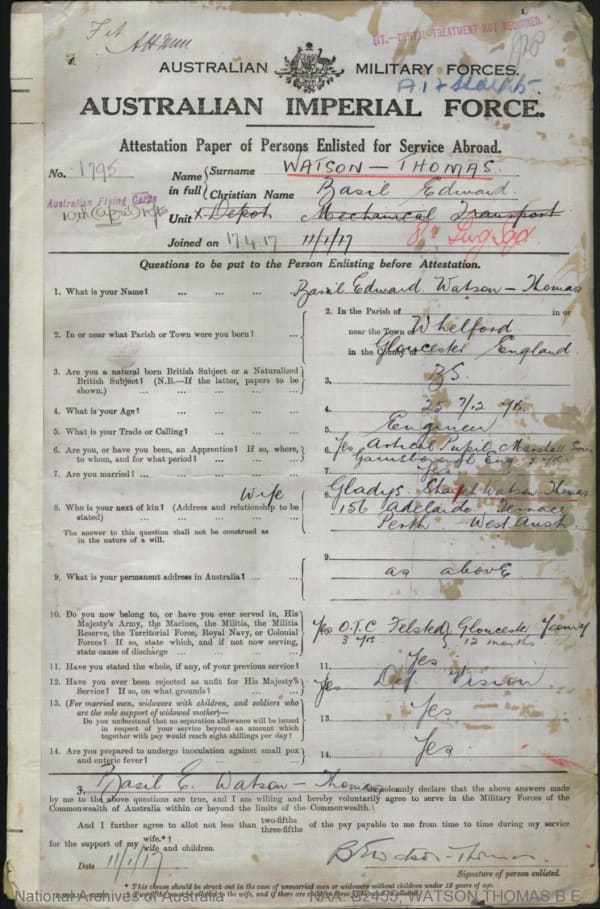 Fit
LIT.—DENTAL TREATMENT NOT REQUIRED.
AUSTRALIAN MILITARY FORCES.
AUSTRALIAN IMPERIAL FORCE.
Attestation Paper of Persons Enlisted for Service Abroad.
No. 1795
Name in full { Surname WATSON — THOMAS.
Christian Name Basil Edward.
Australian Flying Corps
Unit x Depot Mechanical Transport
Joined on 17.4.17 11/1/17
Questions to be put to the Person Enlisting before Attestation.
1. What is your Name? ... ... ... Basil Edward Watson — Thomas
2. In or near what Parish or Town were you born? ... 2. In the Parish of in or
near the Town of Whelford
in the County of Gloucester England.
3. Are you a natural born British Subject or a Naturalized
British Subject? (N.B.—If the latter, papers to be
shown.) ... ... ... 3. BS.
4. What is your Age? ... ... ... 4. 25 7/12 yrs.
5. What is your Trade or Calling? ... ... 5. Engineer
6. Are you, or have you been, an Apprentice? If so, where,
to whom, and for what period? ... ... 6. Yes Artical Pupil Marshall Sons
Gainsborough Eng. 3 yrs.
7. Are you married? ... ... ... 7. Yes
Wife
8. Who is your next of kin? (Address and relationship to be
stated) ... ... ... 8. Gladys Watson Thomas
156 Adelaide Terrace
Perth West Aust
The answer to this question shall not be construed as
in the nature of a will.
9. What is your permanent address in Australia? ... ... 9. as above
10. Do you now belong to, or have you ever served in, His
Majesty's Army, the Marines, the Militia, the Militia
Reserve, the Territorial Force, Royal Navy, or Colonial
Forces? If so, state which, and if not now serving,
state cause of discharge ... ... ... Yes O.T.C Felsted, Gloucester Yeomry
3 yrs 12 months.
11. Have you stated the whole, if any, of your previous service? 11. Yes
12. Have you ever been rejected as unfit for His Majesty's
Service? If so, on what grounds? ... ... Yes Def Vision
13. (For married men, widowers with children, and soldiers who
are the sole support of widowed mother)—
Do you understand that no separation allowance will be issued
in respect of your service beyond an amount which
together with pay would reach eight shillings per day? 13. Yes
14. Are you prepared to undergo inoculation against small pox
and enteric fever? ... ... ... 14. Yes.
I, Basil E. Watson — Thomas do solemnly declare that the above answers made
by me to the above questions are true, and I am willing and hereby voluntarily agree to serve in the Military Forces of the
Commonwealth of Australia within or beyond the limits of the Commonwealth.
And I further agree to allot not less than two-fifths three-fifths of the pay payable to me from time to time during my service
for the support of my wife.*†
wife and children.
Date 11/1/17
B E Watson-Thomas
Signature of person enlisted.
* This clause should be struck out in the case of unmarried men or widowers without children under 18 years of age.
National Archives of Australia
NAA: B2455, WATSON THOMAS B E